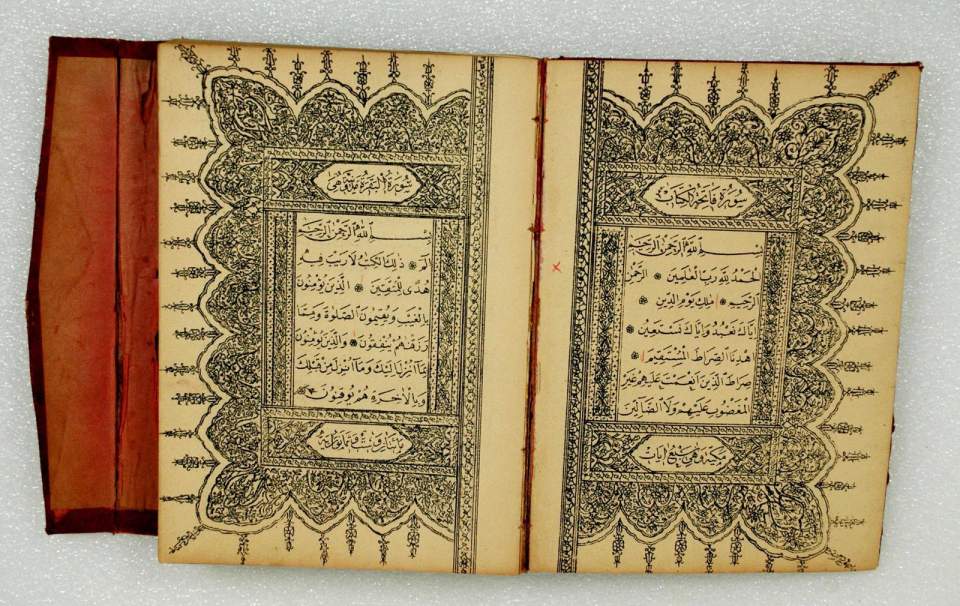 سورة فاتحة الكتاب
بسم الله الرحمن الرحيم
الحمد لله رب العلمين الرحمن
الرحيم ملك يوم الدين
اياك نعبد واياك نستعين
اهدنا الصراط المستقيم
صراط الذين انعمت عليهم غير
المغضوب عليهم ولا الضالين
مكية وهي سبع ايات
سورة البقرة مدنية وهي
بسم الله الرحمن الرحيم
الم ذلك الكتب لا ريب فيه
هدى للمتقين الذين يؤمنون
بالغيب ويقيمون الصلوة ومما
رزقنهم ينفقون والذين يؤمنون
بما انزل اليك وما انزل من قبلك
وبالاخرة هم يوقنون
مائتان وست وثمانون اية